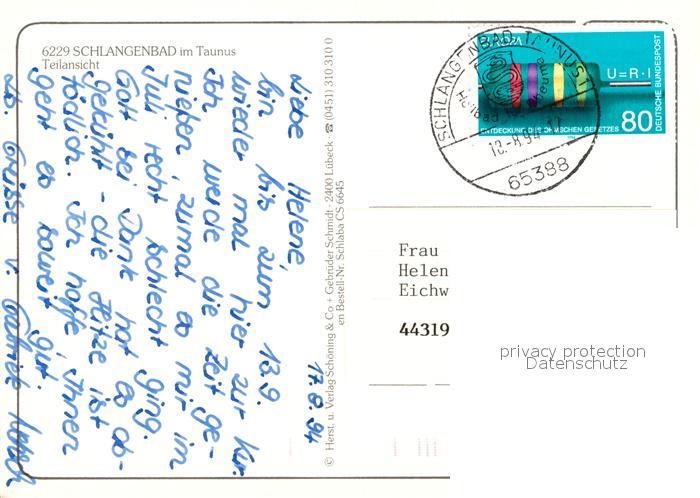 6229 SCHLANGENBAD im Taunus
Teilansicht
17.8.94
Liebe Helene,
bin bis zum 13.9.
wieder mal hier zur Kur.
Ich werde die Zeit ge-
nießen, zumal es mir im
Juli recht schlecht ging.
Gott sei Dank hat es ab-
gekühlt - die Hitze ist
tödlich. Ich hoffe, Ihnen
geht es soweit gut,
lb. Grüsse v. Gabriele
© Herst. u. Verlag Schöning & Co + Gebrüder Schmidt · 2400 Lübeck · ☎ (0451) 310 310 0
en Bestell-Nr. Schlaba CS 6645
SCHLANGENBAD, TAUNUS
18.-8.94-17
65388
EUROPA
U=R·I
ENTDECKUNG DES OHMSCHEN GESETZES
80
DEUTSCHE BUNDESPOST
Frau
Helen
Eichw
44319
privacy protection
Datenschutz